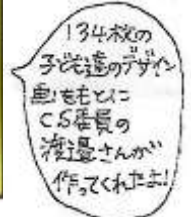 134枚の
子ども達のデザイン
画をもとに
CS委員の
渡邉さんが
作ってくれたよ!